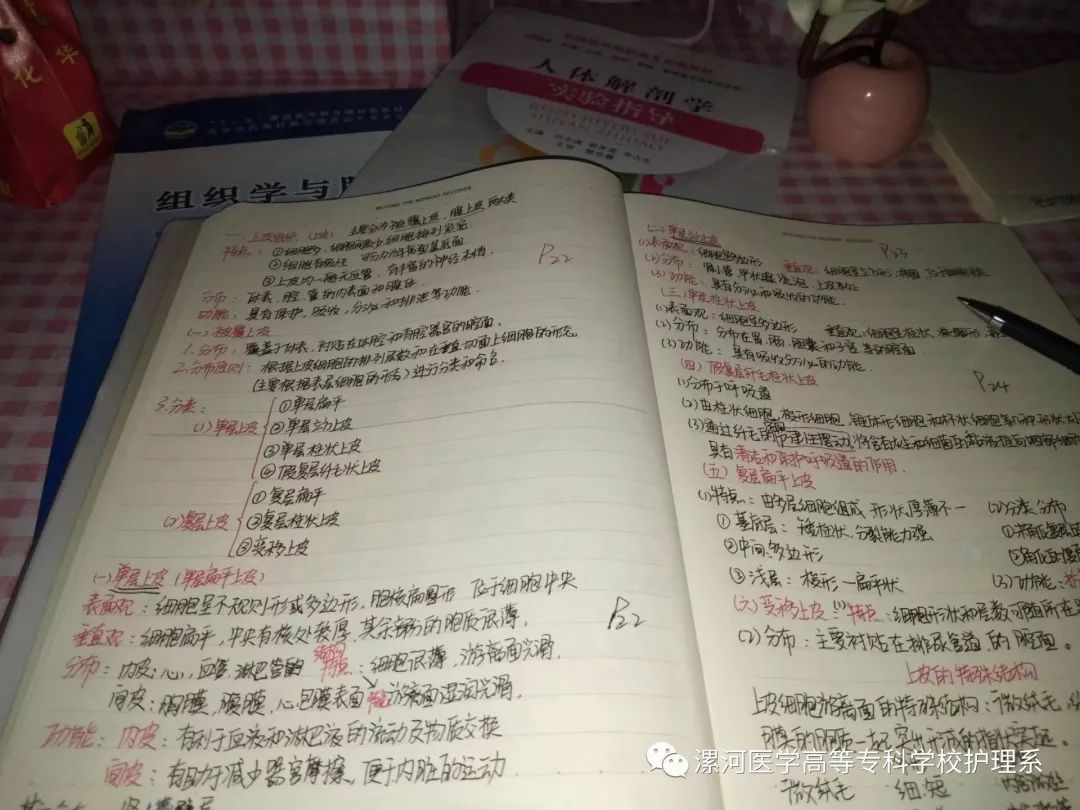 化 华
人体解剖学
实验指导
RENTI JIEPOU XUE
SHIYAN ZHIDAO
主编
主审
组织学与
BEYOND THE MOMENT RECORDS
一、上皮组织（上皮） 主要分为被覆上皮，腺上皮两大类
特点：①细胞多，细胞间质少细胞排列紧密
②细胞有极性 可分为游离面基底面
③上皮内一般无血管，有丰富的神经末梢。
P22
分布：体表、腔、管的内表面和腺体
功能：具有保护、吸收，分泌和排泄等功能。
(一) 被覆上皮
1.分布：覆盖于体表、衬贴在体腔和有腔器官的腔面。
2.分布原则：根据上皮细胞的排列层数和在垂直切面上细胞的形态
(主要根据表层细胞的形态)进行分类和命名。
3.分类：
(1)单层上皮
①单层扁平
②单层立方上皮
③单层柱状上皮
④假复层纤毛状上皮
(2)复层上皮
①复层扁平
②复层柱状上皮
③变移上皮
(一)单层上皮（单层扁平上皮）
表面观：细胞呈不规则形或多边形，胞核扁圆形 位于细胞中央
垂直观：细胞扁平，中央有核处较厚，其余部分的胞质很薄。
P22
分布：内皮：心，血管，淋巴管 特点：细胞很薄，游离面光滑。
间皮：胸膜，腹膜，心包膜表面 游离面湿润光滑。
功能：内皮：有利于血液和淋巴液的流动及物质交换
间皮：有助于减少器官摩擦，便于内脏的运动
(二)单层立方上皮
P23
(1)表面观：细胞呈多边形 垂直观：细胞呈立方形
(2)分布：肾小管、甲状腺滤泡、上皮等处
(3)功能：具有分泌和吸收的功能。
(三)单层柱状上皮
(1)表面观：细胞呈多边形 垂直观：细胞呈柱状
(2)分布：分布在胃、肠、胆囊和子宫等的腔面
(3)功能：具有吸收分泌的功能。
(四)假复层纤毛柱状上皮
P24
(1)分布于呼吸道
(2)由柱状细胞，梭形细胞，锥体形细胞和杯状细胞等
(3)通过纤毛的节律性摆动，将含有灰尘和细菌
具有清洁和保护呼吸道的作用.
(五)复层扁平上皮
(1)特点：由多层细胞组成 形状厚薄不一 (2)分类分布
①基底层：矮柱状，分裂能力强
②中间，多边形
③浅层：梭形—扁平状 (3)功能：
(六)变移上皮：(1)特点：细胞形状和层数可随所在
(2)分布：主要衬贴在排尿管道的腔面。
上皮的特殊结构
上皮细胞游离面的特殊结构：微绒毛
微绒毛 细 短
漯河医学高等专科学校护理系